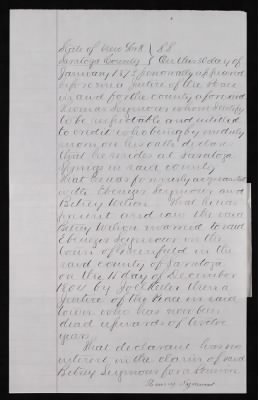 State of New York } SS.
Saratoga County } On this 30 day of
January 1872 personally appeared
before me a Justice of the Peace
in and for the county aforesaid
Thomas Seymour whom I certify
to be respectable and intitled
to credit who being by me duly
sworn on his oath declares
that he resides at Saratoga
Springs in said county
that he was formerly acquainted
with Ebenezer Seymour and
Betsey Wilson that he was
present and saw the said
Betsey Wilson married to said
Ebenezer Seymour in the
town of Greenfield in the
said county of Saratoga
on the 11 day of December
by then a
Justice of the Peace in said
town who has now been
dead upwards of twelve
years
That declarant has no
interest in the claim of said
Betsey Seymour for a Pension
Seymour